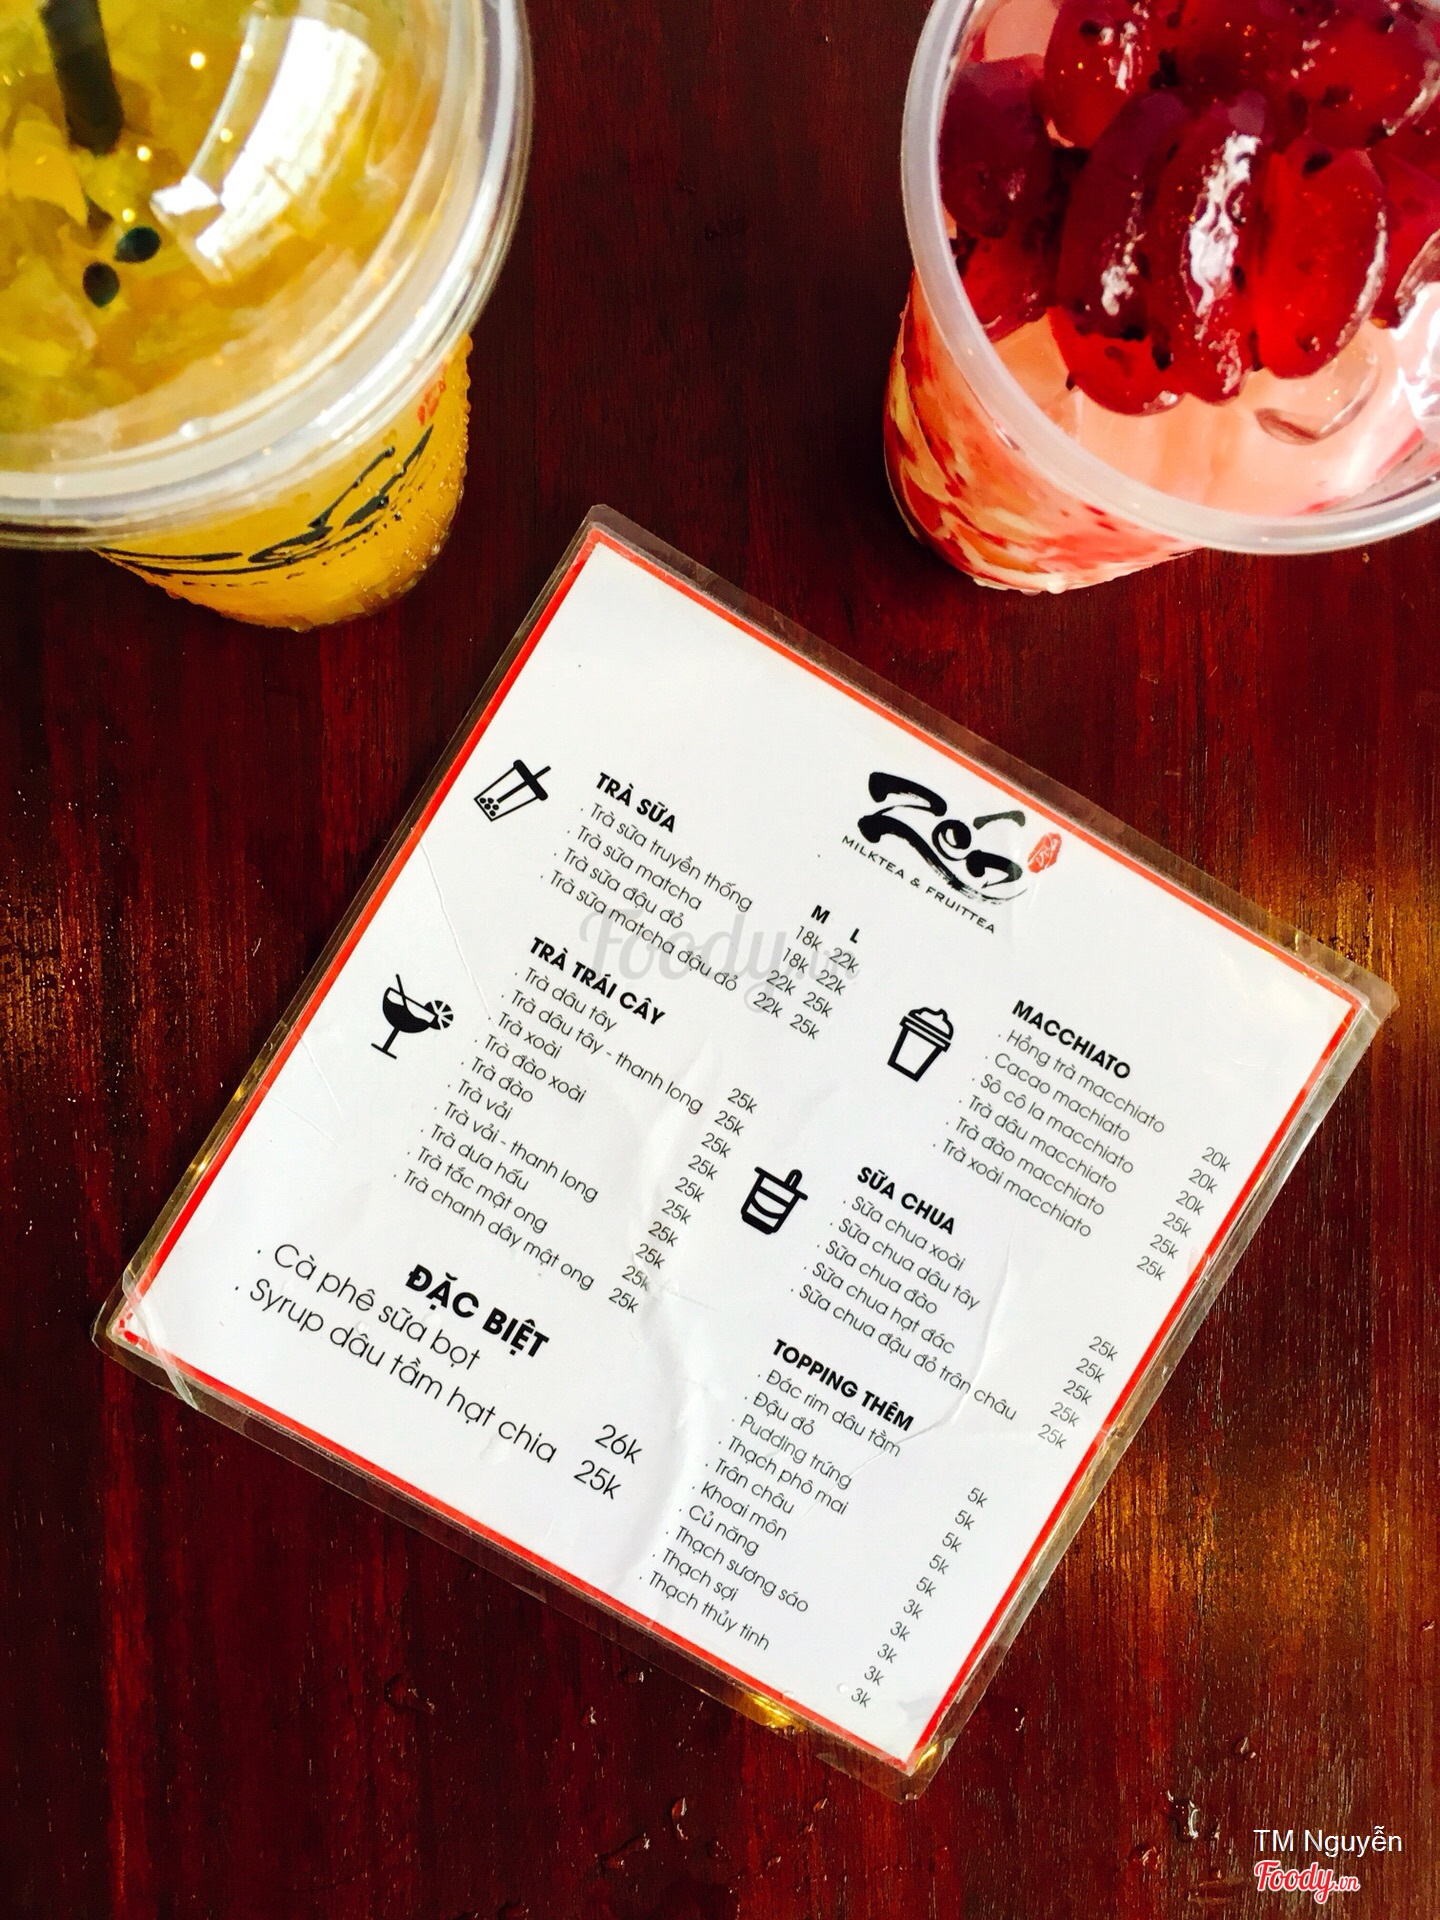 Zén
MILKTEA & FRUITTEA
TRÀ SỮA
M L
. Trà sữa truyền thống 18k 22k
. Trà sữa matcha 18k 22k
. Trà sữa đậu đỏ 22k 25k
. Trà sữa matcha đậu đỏ 22k 25k
TRÀ TRÁI CÂY
. Trà dâu tây 25k
. Trà dâu tây - thanh long 25k
. Trà xoài 25k
. Trà đào xoài 25k
. Trà đào 25k
. Trà vải 25k
. Trà vải - thanh long 25k
. Trà dưa hấu 25k
. Trà tắc mật ong 25k
. Trà chanh dây mật ong 25k
ĐẶC BIỆT
. Cà phê sữa bọt 26k
. Syrup dâu tằm hạt chia 25k
MACCHIATO
. Hồng trà macchiato 20k
. Cacao machiato 20k
. Sô cô la macchiato 20k
. Trà dâu macchiato 25k
. Trà đào macchiato 25k
. Trà xoài macchiato 25k
SỮA CHUA
. Sữa chua xoài 25k
. Sữa chua dâu tây 25k
. Sữa chua đào 25k
. Sữa chua hạt đác 25k
. Sữa chua đậu đỏ trân châu 25k
TOPPING THÊM
. Đác rim dâu tằm 5k
. Đậu đỏ 5k
. Pudding trứng 5k
. Thạch phô mai 5k
. Trân châu 5k
. Khoai môn 3k
. Củ năng 3k
. Thạch sương sáo 3k
. Thạch sợi 3k
. Thạch thủy tinh 3k
Foody.vn
TM Nguyễn
Foody.vn